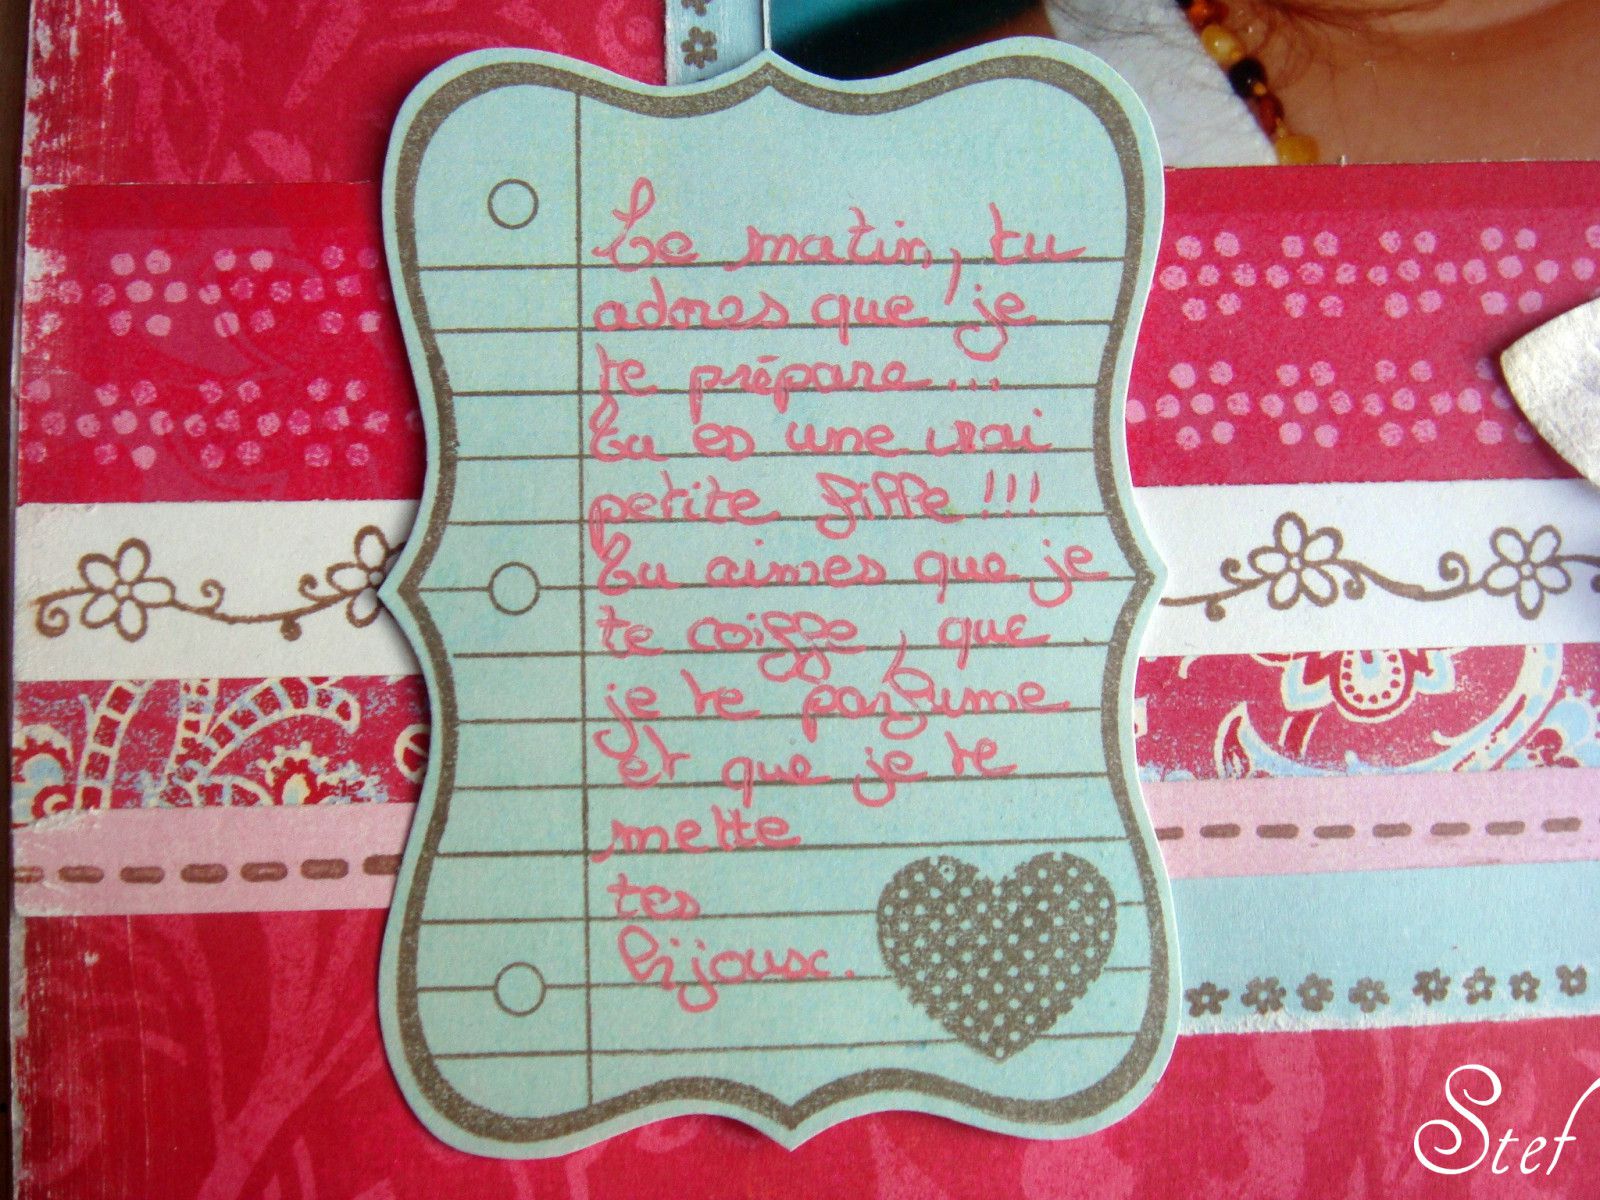 Le matin, tu
adores que je
te prépare...
Tu es une vrai
petite fille!!!
Tu aimes que je
te coiffe, que
je te parfume
et que je te
mette
tes
bijoux.
Stef